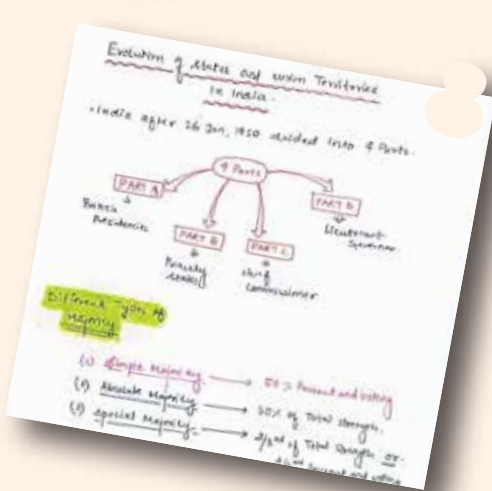 Evolution of States and Union Territories
in India.
• India after 26 Jan, 1950 divided into 4 Parts.
4 Parts
PART A
British
Presidencies
PART B
Princely
States
PART C
chief
Commissioner
PART D
Lieutenant
Governor
Different Types of
Majority
(1) Simple Majority → 50% Present and voting
(2) Absolute Majority → 50% of Total strength.
(3) Special Majority → 2/3rd of Total Strength or
2/3rd present and voting